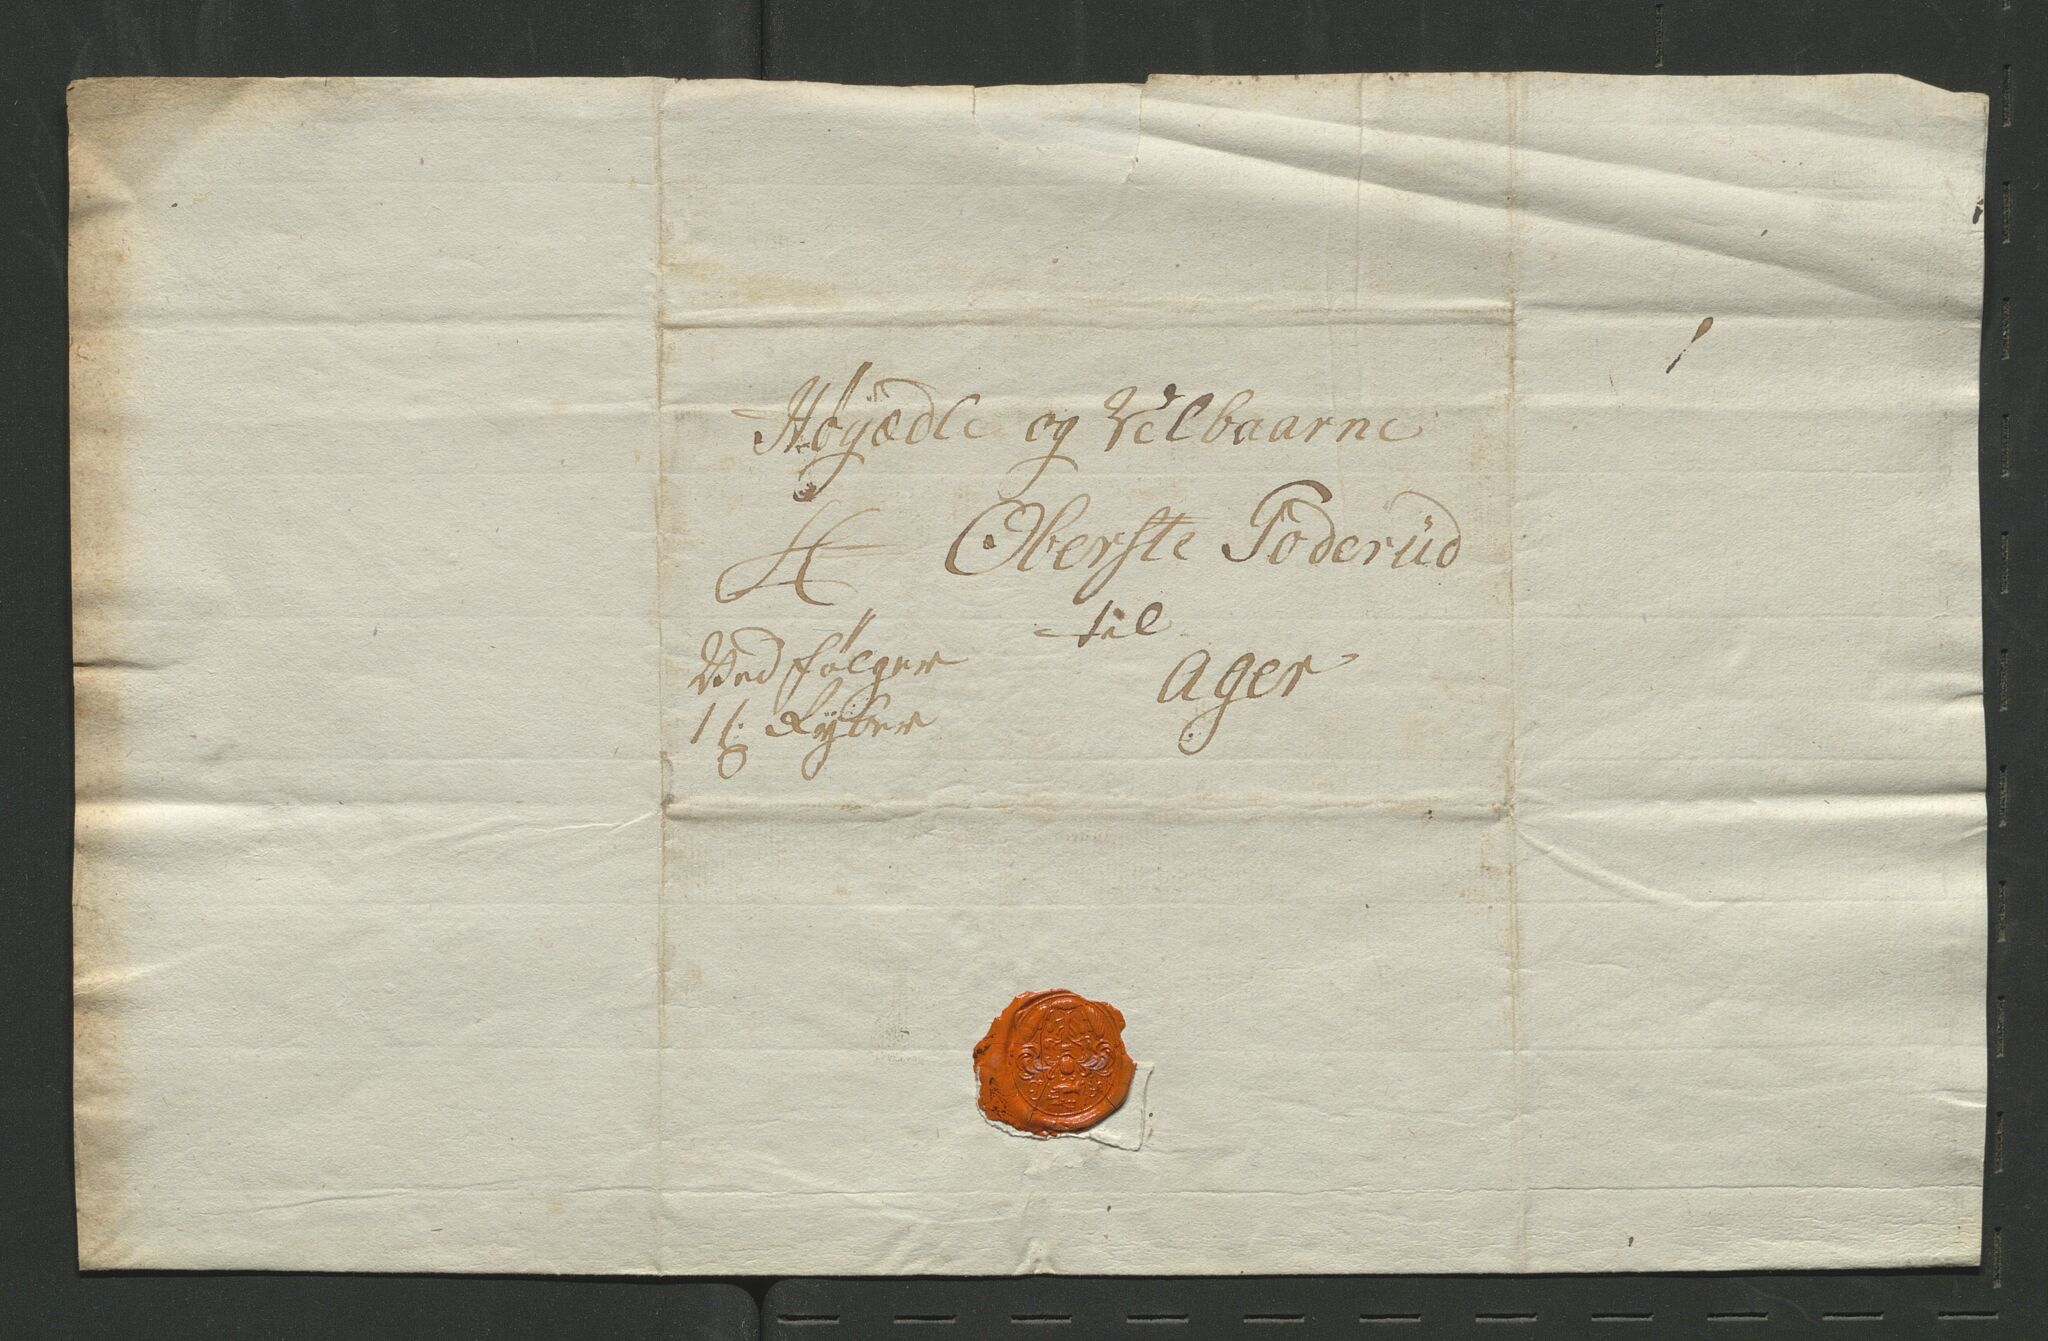 Høyædle og Velbaarne
H Oberste Toderüd
til
Ager
Ved følger
1 s: Ryber